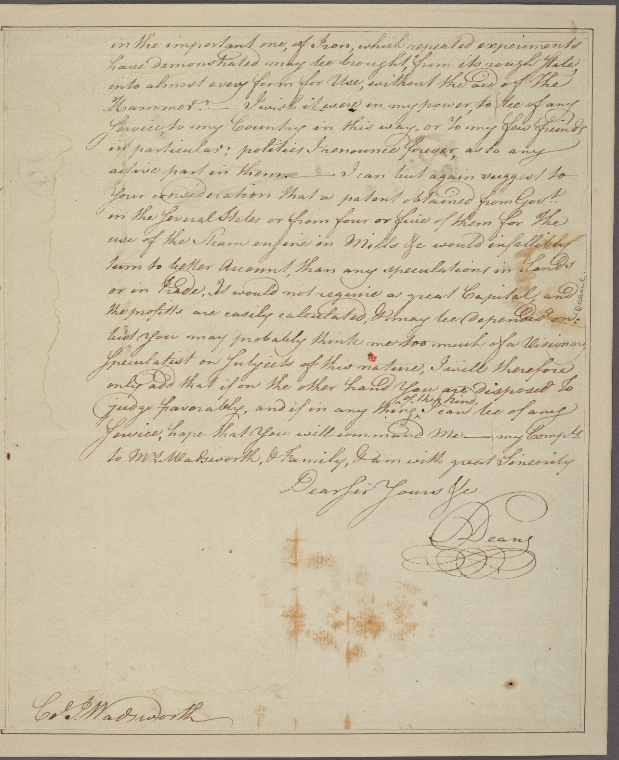 in the important one, of Iron, which repeated experiments
have demonstrated may be brought, from its rough State,
into almost every form for Use, without the aid of The
Hammer.— I wish it were in my power, to be of any
Service, to my Country in this way, or to my few freinds
in particular; politics I renounce forever, as to any
active part in them.— I can but again suggest to
Your consideration that a patent obtained from Govt.
in the several States or from four or five of them for the
use of the Steam engine in Mills &c would infallibly
turn to better Account, than any speculations in Lands
or in trade, It would not require a great Capital, and
the profits are easily calculated, & may be depended on;
but You may probably think me too much of a Visionary
Speculatist on subjects of this nature, I will therefore
only add that if on the other hand You are disposed to
judge favorably, and if in any thing of this kind, I can be of any
Service, hope that You will command Me— my Compts.
to Mrs. Wadsworth, & Family, & am with great Sincerity
Dear Sir Yours &c
S Deane
Col. J. Wadsworth
Deane